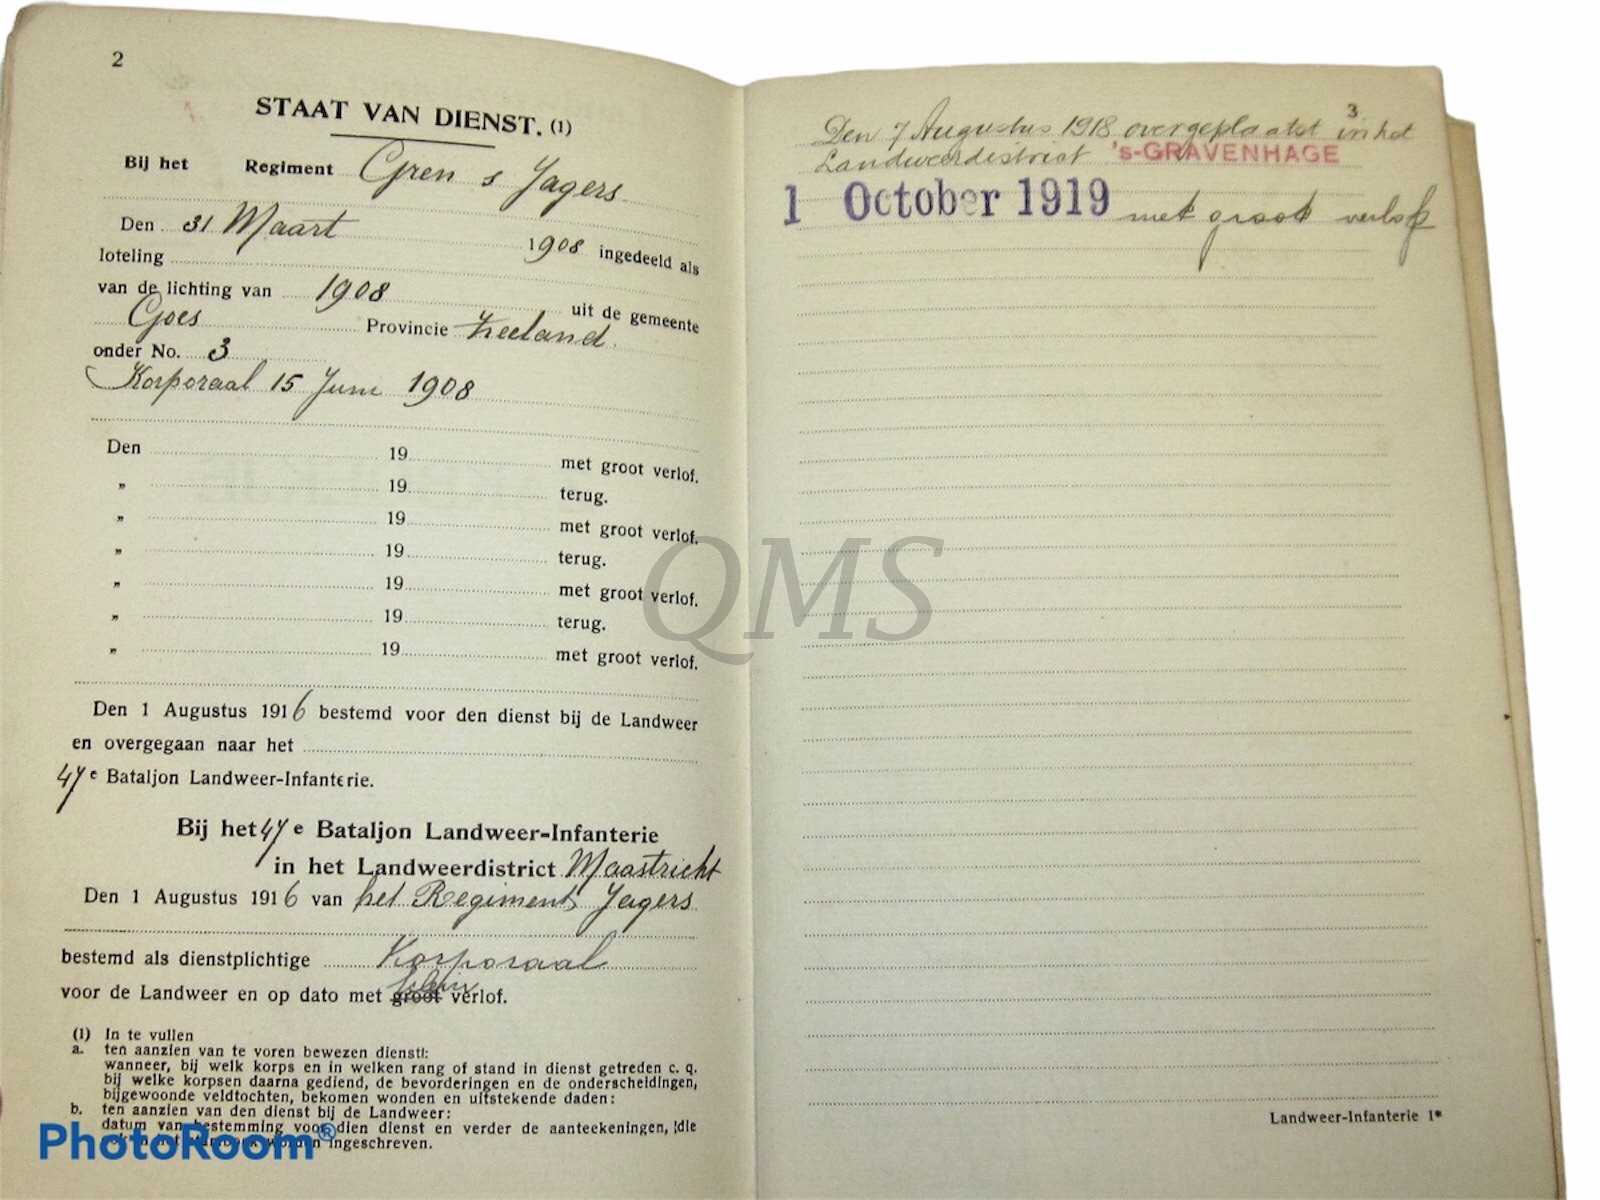 2
STAAT VAN DIENST. (1)
Bij het Regiment Gren s Jagers.
Den 31 Maart 1908 ingedeeld als
loteling
van de lichting van 1908 uit de gemeente
Goes Provincie Zeeland.
onder No. 3
Korporaal 15 Juni 1908
Den 19 met groot verlof.
„ 19 terug.
„ 19 met groot verlof.
„ 19 terug.
„ 19 met groot verlof.
„ 19 terug.
„ 19 met groot verlof.
Den 1 Augustus 1916 bestemd voor den dienst bij de Landweer
en overgegaan naar het
47e Bataljon Landweer-Infanterie.
Bij het 47e Bataljon Landweer-Infanterie
in het Landweerdistrict Maastricht
Den 1 Augustus 1916 van het Regiment Jagers
bestemd als dienstplichtige Korporaal
voor de Landweer en op dato met klein groot verlof.
(1) In te vullen
a. ten aanzien van te voren bewezen dienst:
wanneer, bij welk korps en in welken rang of stand in dienst getreden c. q.
bij welke korpsen daarna gediend, de bevorderingen en de onderscheidingen,
bijgewoonde veldtochten, bekomen wonden en uitstekende daden:
b. ten aanzien van den dienst bij de Landweer:
datum van bestemming voor dien dienst en verder de aanteekeningen, die
ingeschreven.
PhotoRoom®
3
Den 7 Augustus 1918 overgeplaatst in het
Landweerdistrict 's-GRAVENHAGE
1 October 1919 met groot verlof
QMS
Landweer-Infanterie 1*